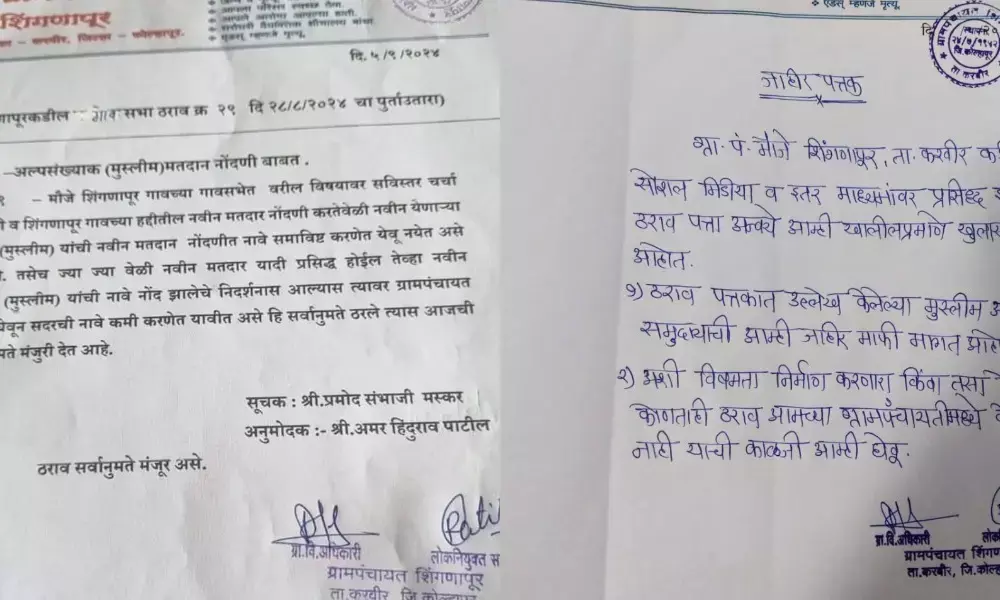 शिंगणापूर
करवीर, जिल्हा - कोल्हापूर.
एडस् म्हणजे मृत्यू.
दि. ५/९/२०२४
सभा ठराव क्र २९ दि २८/८/२०२४ चा पुर्ताउतारा)
-अल्पसंख्याक (मुस्लीम)मतदान नोंदणी बाबत .
- मौजे शिंगणापूर गावच्या गावसभेत वरील विषयावर सविस्तर चर्चा
व शिंगणापूर गावच्या हद्दीतील नवीन मतदार नोंदणी करतेवेळी नवीन येणाऱ्या
(मुस्लीम) यांची नवीन मतदान नोंदणीत नावे समाविष्ट करणेत येवू नयेत असे
. तसेच ज्या ज्या वेळी नवीन मतदार यादी प्रसिद्ध होईल तेव्हा नवीन
(मुस्लीम) यांची नावे नोंद झालेचे निदर्शनास आल्यास त्यावर ग्रामपंचायत
सदरची नावे कमी करणेत यावीत असे हि सर्वानुमते ठरले त्यास आजची
मंजुरी देत आहे.
सूचक : श्री.प्रमोद संभाजी मस्कर
अनुमोदक :- श्री.अमर हिंदुराव पाटील
ठराव सर्वानुमते मंजूर असे.
ग्रा.वि.अधिकारी
लोकनियुक्त स
ग्रामपंचायत शिंगणापूर
ता.करवीर, जि.कोल्हापूर
एडस् म्हणजे मृत्यू.
दि
स्थापना
२४/७/१९५२
जि.कोल्हापूर
ता.करवीर
जाहीर पत्रक
ग्रा. पं. मौजे शिंगणापूर, ता. करवीर
सोशल मिडीया व इतर माध्यमांवर प्रसिध्द
ठराव पत्ता अन्वये आम्ही खालीलप्रमाणे
आहोत.
१) ठराव पत्रकात उल्लेख केलेल्या मुस्लीम
समुदायाची आम्ही जाहिर माफी मागत
२) अशी विषमता निर्माण करणारा किंवा तसा
कोणताही ठराव आमच्या ग्रामपंचायतीमध्ये
नाही याची काळजी आम्ही घेवू.
ग्रा.वि.अधिकारी
ग्रामपंचायत शिंगणापूर
ता.करवीर, जि.कोल्हा